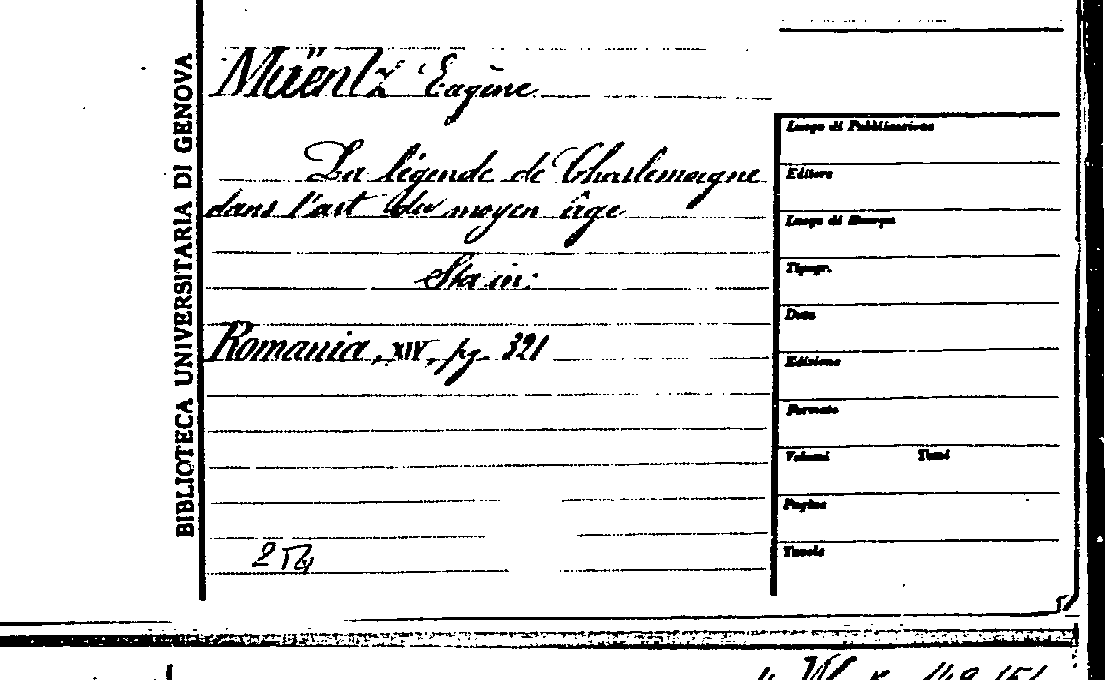 BIBLIOTECA UNIVERSITARIA DI GENOVA
Müentz Eugène
La légende de Charlemagne
dans l'art du moyen âge
Sta in:
Romania, XIV, pg. 321
Luogo di Pubblicazione
Editore
Luogo di Stampa
Tipogr.
Data
Edizione
Formato
Volumi Tomi
Pagine
Tavole